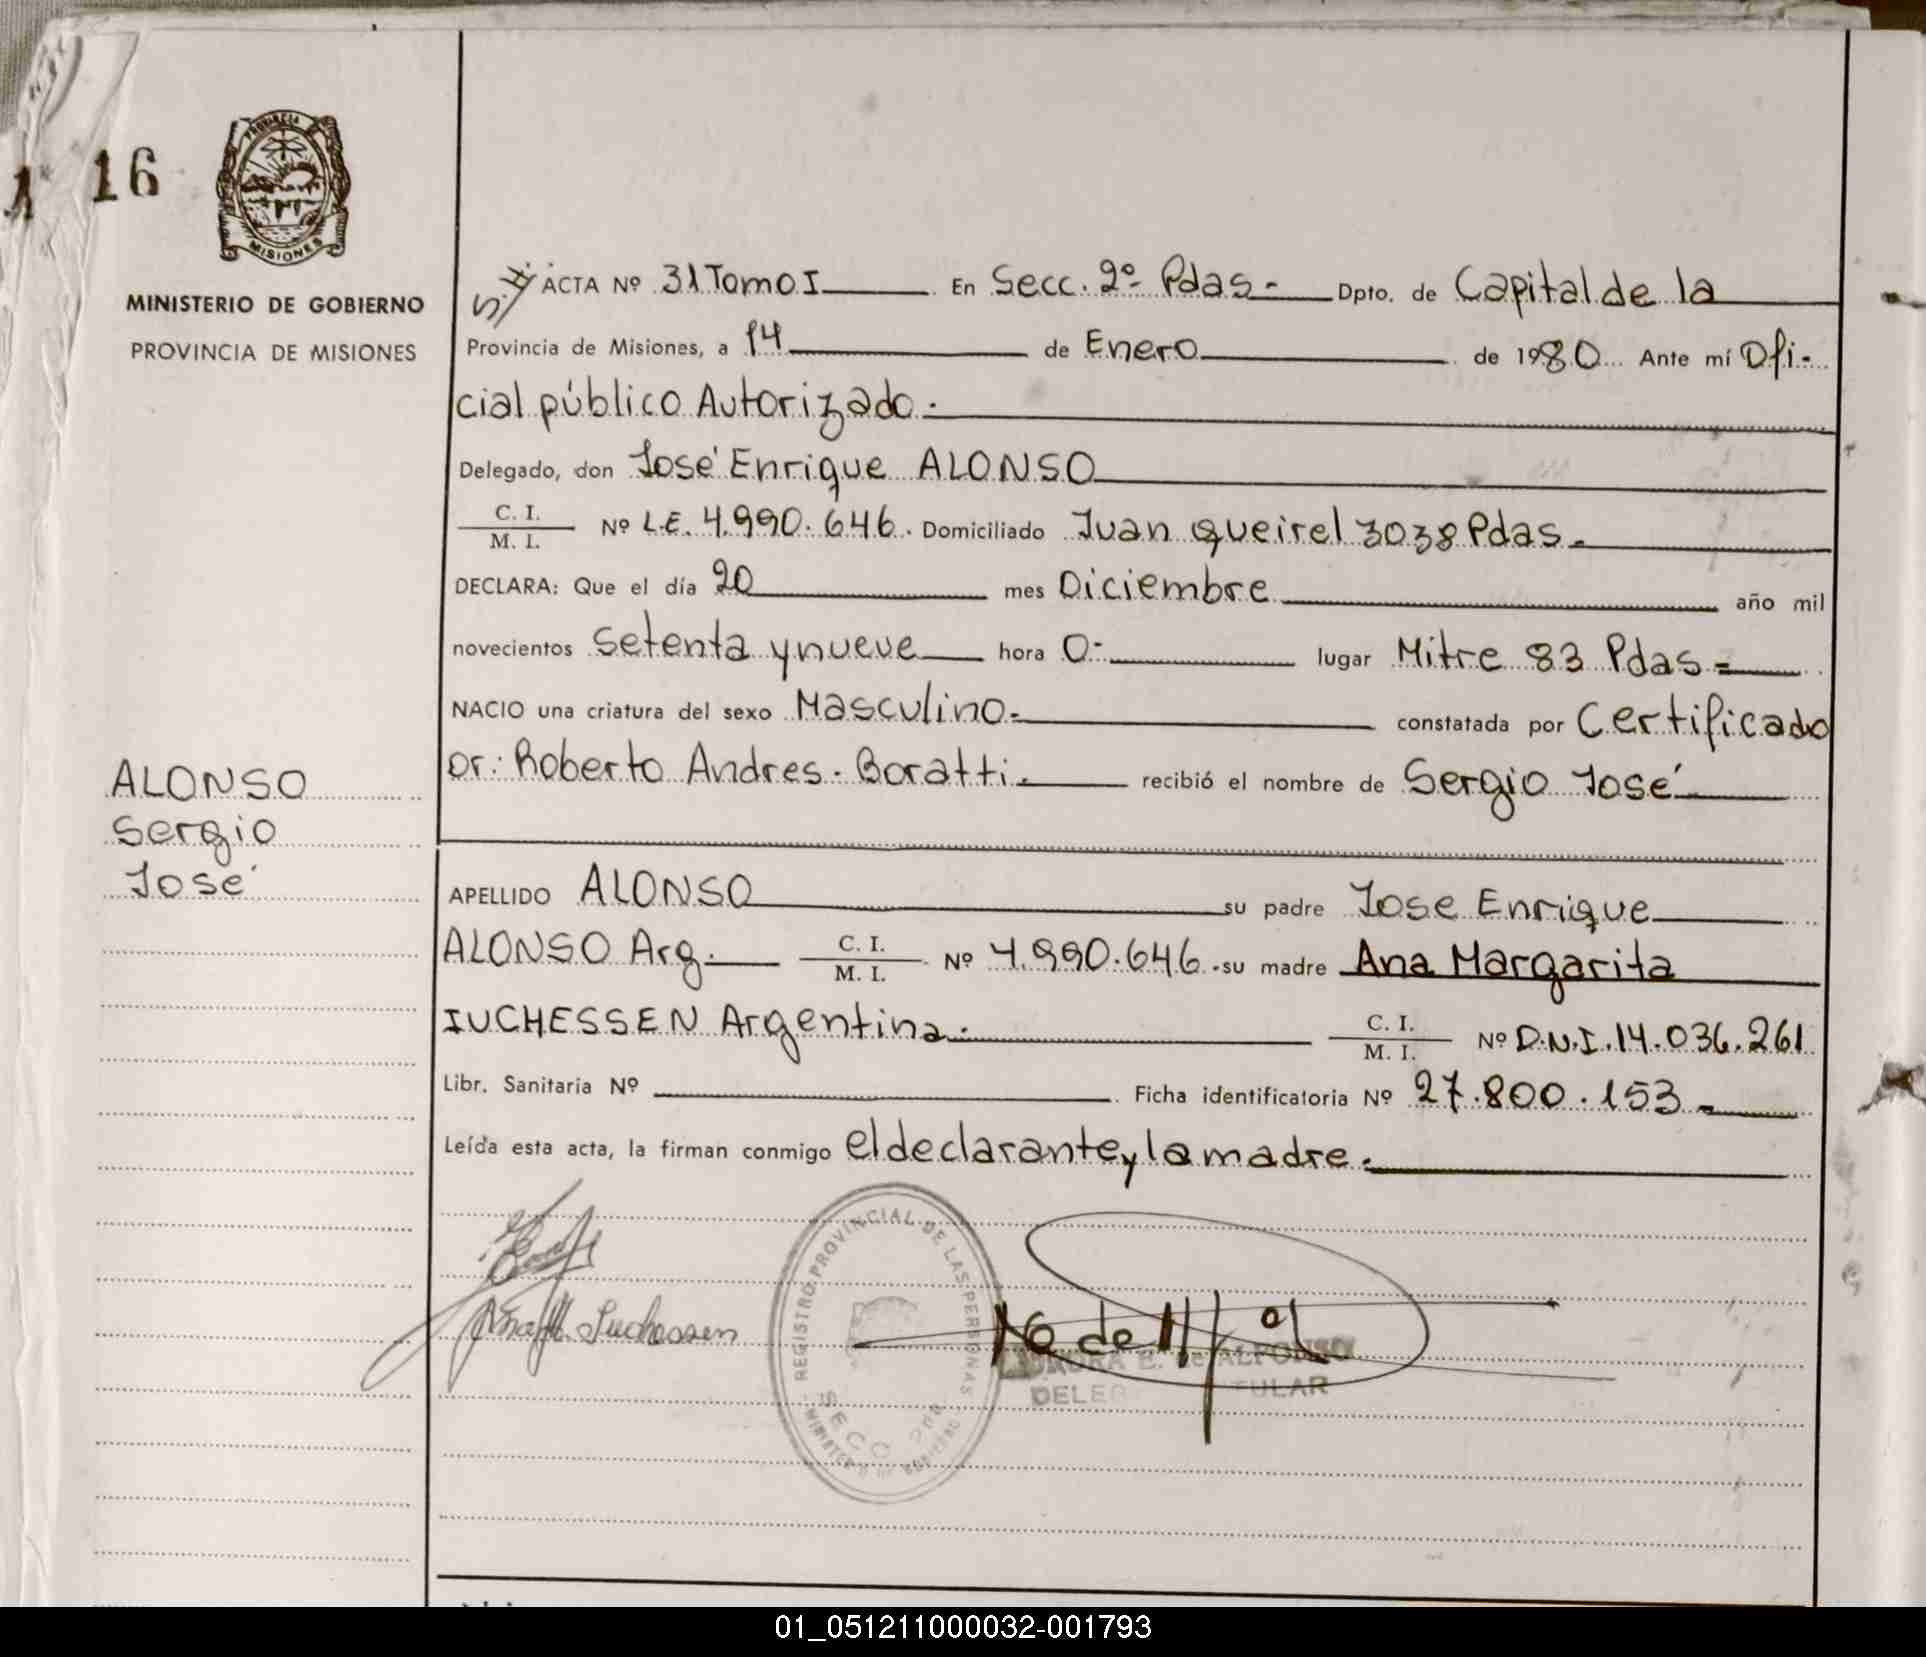 16
PROVINCIA
MISIONES
MINISTERIO DE GOBIERNO
PROVINCIA DE MISIONES
ACTA Nº 31 Tomo I En Secc. 2º Pdas - Dpto. de Capital de la
Provincia de Misiones, a 14 de Enero de 1980 Ante mí Ofi-
cial público Autorizado.
Delegado, don José Enrique ALONSO
C. I.
M. I.
Nº L.E. 4.990.646. Domiciliado Juan queirel 3038 Pdas.
DECLARA: Que el día 20 mes Diciembre año mil
novecientos setenta y nueve hora 0- lugar Mitre 83 Pdas=
NACIO una criatura del sexo Masculino. constatada por Certificado
Dr: Roberto Andres. Boratti. recibió el nombre de Sergio José
ALONSO
Sergio
José
APELLIDO ALONSO su padre Jose Enrique
ALONSO Arg. C. I. M. I. Nº 4.990.646. su madre Ana Margarita
IUCHESSEN Argentina. C. I. M. I. Nº D.N.I. 14.036.261
Libr. Sanitaria Nº Ficha identificatoria Nº 27.800.153
Leída esta acta, la firman conmigo el declarante y la madre.
REGISTRO PROVINCIAL DE LAS PERSONAS
SECC
E. de ALFONSO
01_051211000032-001793